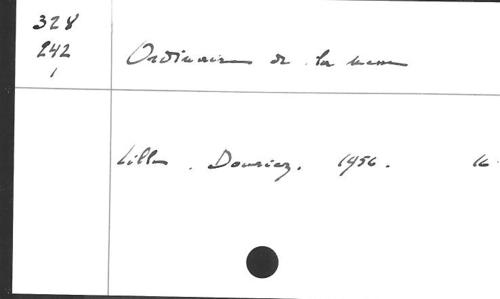 328
242
1
Ordinaire de la messe
Lille. Douriez. 1956. 16